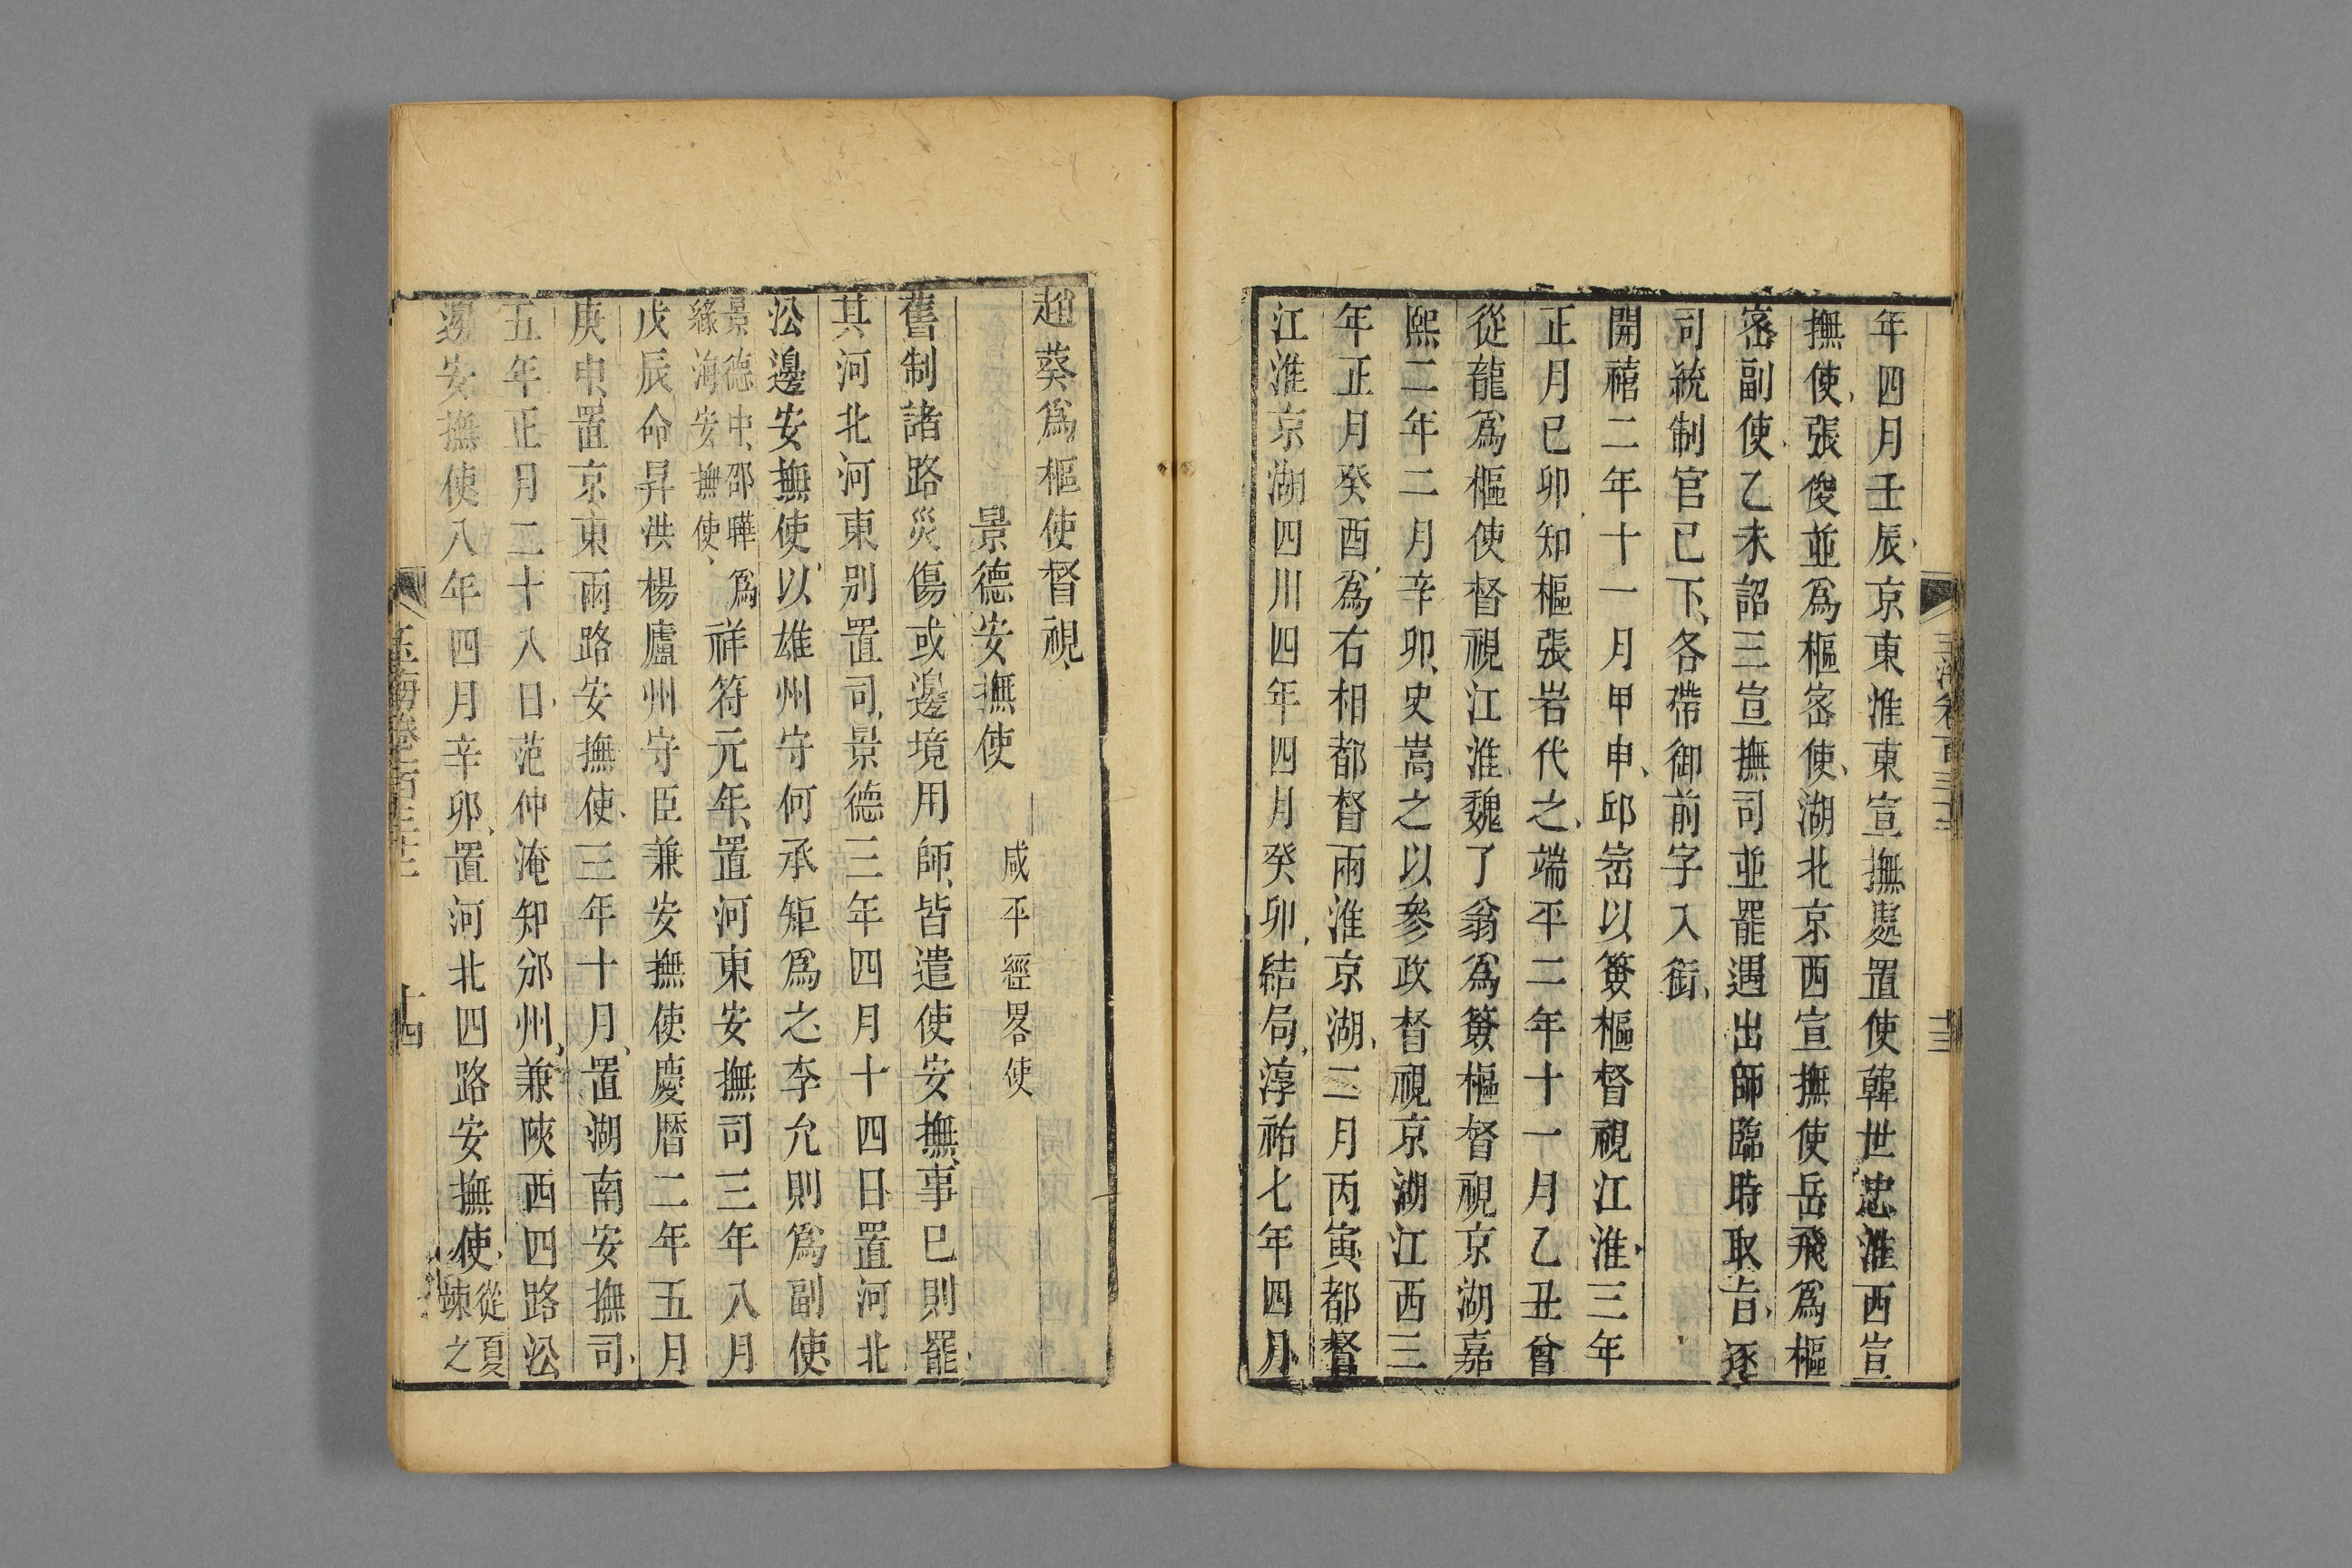 年四月壬辰京東淮東宣撫處置使韓世忠淮西宣
撫使張俊並爲樞密使湖北京西宣撫使岳飛爲樞
密副使乙未詔三宣撫司並罷遇出師臨時取旨逐
司統制官已下各帶御前字入銜
開禧二年十一月甲申邱崈以簽樞督視江淮三年
正月已卯知樞張岩代之端平二年十一月乙丑曾
從龍爲樞使督視江淮魏了翁爲簽樞督視京湖嘉
熙二年二月辛卯史嵩之以參政督視京湖江西三
年正月癸酉爲右相都督兩淮京湖二月丙寅都督
江淮京湖四川四年四月癸卯結局淳祐七年四月
趙葵爲樞使督視
景德安撫使 咸平經畧使
舊制諸路災傷或邊境用師皆遣使安撫事巳則罷
其河北河東別置司景德三年四月十四日置河北
沿邊安撫使以雄州守何承矩爲之李允則爲副使
景德中邵曄爲
緣海安撫使
祥符元年置河東安撫司三年八月
戊辰命昇洪楊廬州守臣兼安撫使慶曆二年五月
庚申置京東兩路安撫使三年十月置湖南安撫司
五年正月二十八日范仲淹知邠州兼陝西四路沿
邊安撫使八年四月辛卯置河北四路安撫使
從夏
竦之
玉海卷一百三十二
十四